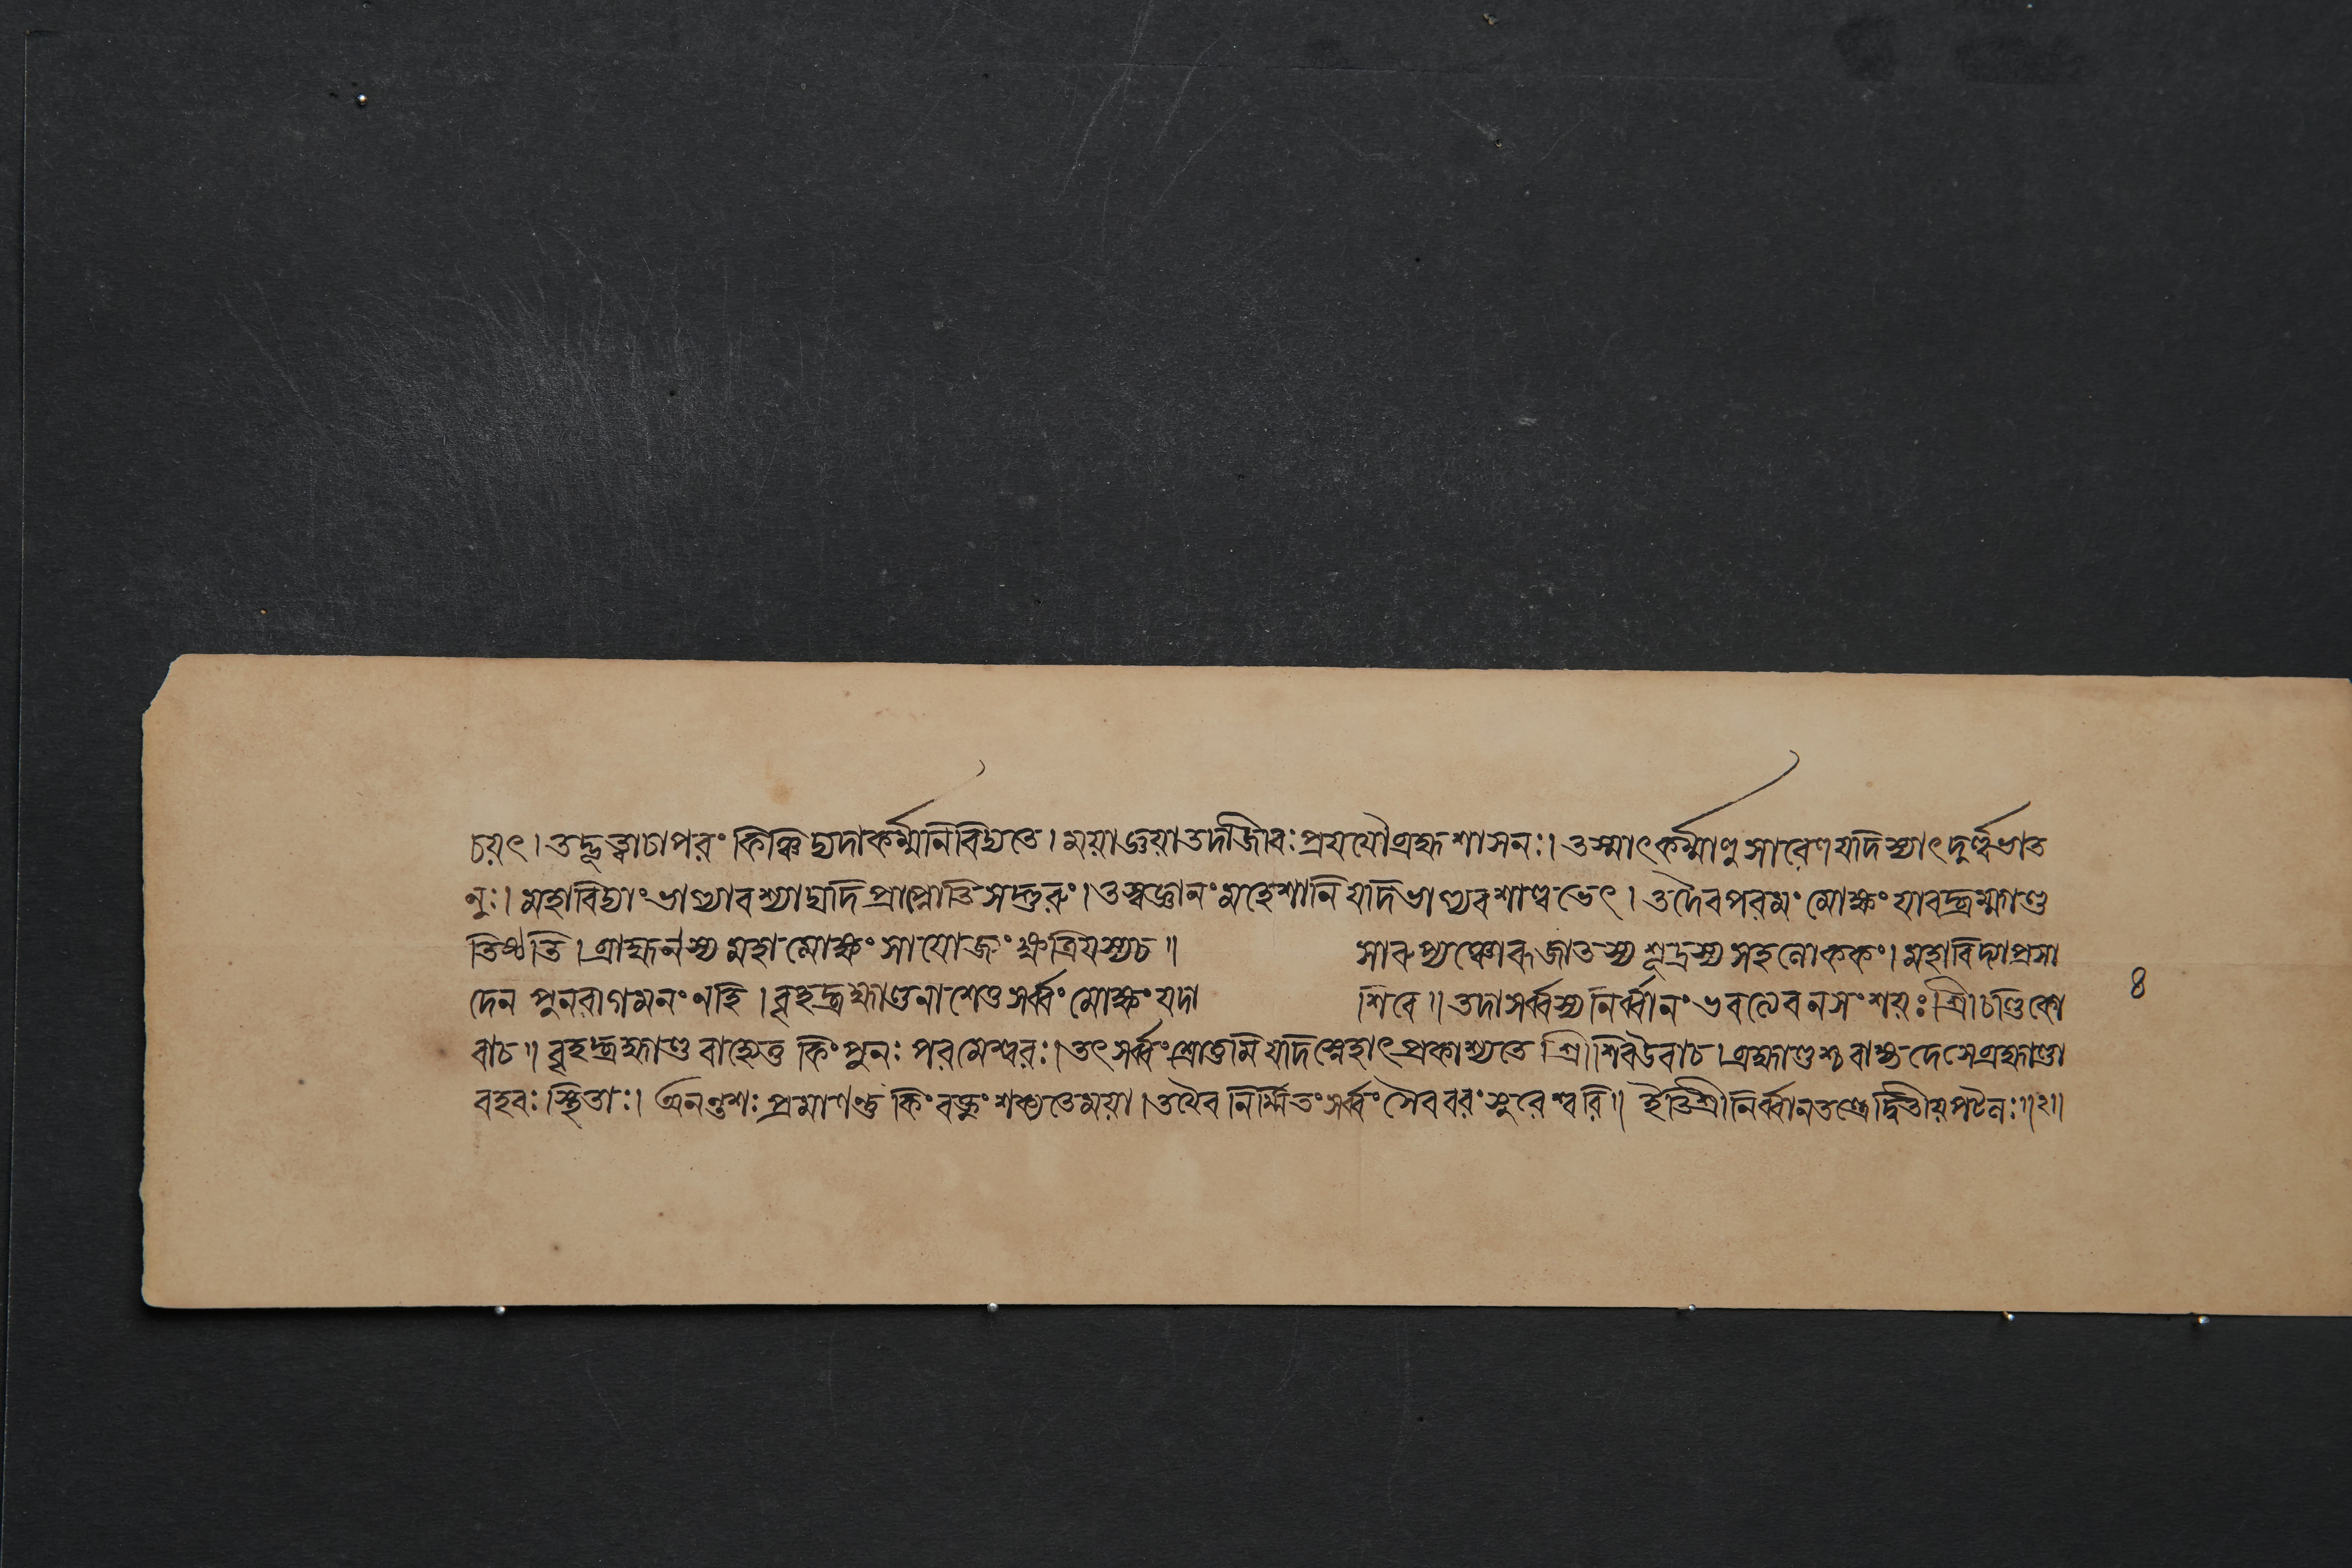 চয়ৎ। তদ্ভূত্বাচাপরং কিঞ্চিদ্যদাকর্ম্মনিবিদ্যতে। ময়াজ্ঞয়াতদাজিবঃ প্রযযৌব্রহ্মশাসনঃ। তস্মাৎকর্ম্মাণুসারেণ যদিস্যাৎ দুর্ল্লভাত
নুঃ। মহাবিদ্যাং ভাগ্যাবশ্যাদ্যদি প্রাপ্নোতি সদ্গুরুং। তত্ত্বজ্ঞানং মহেশানি যদিভাগ্যবশাল্লভেৎ। তদৈবপরমং মোক্ষং যাবদ্ব্রহ্মাণ্ড
তিষ্ঠতি। ব্রাহ্মনস্য মহামোক্ষং সাযোজ্যং ক্ষত্রিয়স্যচ॥ সারুপ্যঞ্চোরুজাতস্য শূদ্রস্য সহলোককং। মহাবিদ্যাপ্রসা
দেন পুনরাগমনং নহি। বৃহদ্ব্রহ্মাণ্ডনাশেতু সর্ব্বং মোক্ষং যদা শিবে॥ তদাসর্ব্বস্য নির্ব্বানং ভবত্যেবনসংশয়ঃ শ্রীচণ্ডিকো
বাচ॥ বৃহদ্ব্রহ্মাণ্ড বাহ্যেতু কিং পুনঃ পরমেশ্বরঃ। তৎ সর্ব্বং শ্রোতুমি যদিস্নেহাৎ প্রকাশ্যতে শ্রীশিবউবাচ। ব্রহ্মাণ্ডস্য বাহ্য দেসে ব্রহ্মাণ্ডা
বহবঃ স্থিতাঃ। অনন্তশঃ প্রমাণন্তু কিং বক্তুং শক্যতেময়া। তথৈব নির্ম্মিতং সর্ব্বং সৈববরং সুরেশ্বরি॥ ইতিশ্রীনির্ব্বানতন্ত্রেদ্বিতীয়পটলঃ॥২॥
৪